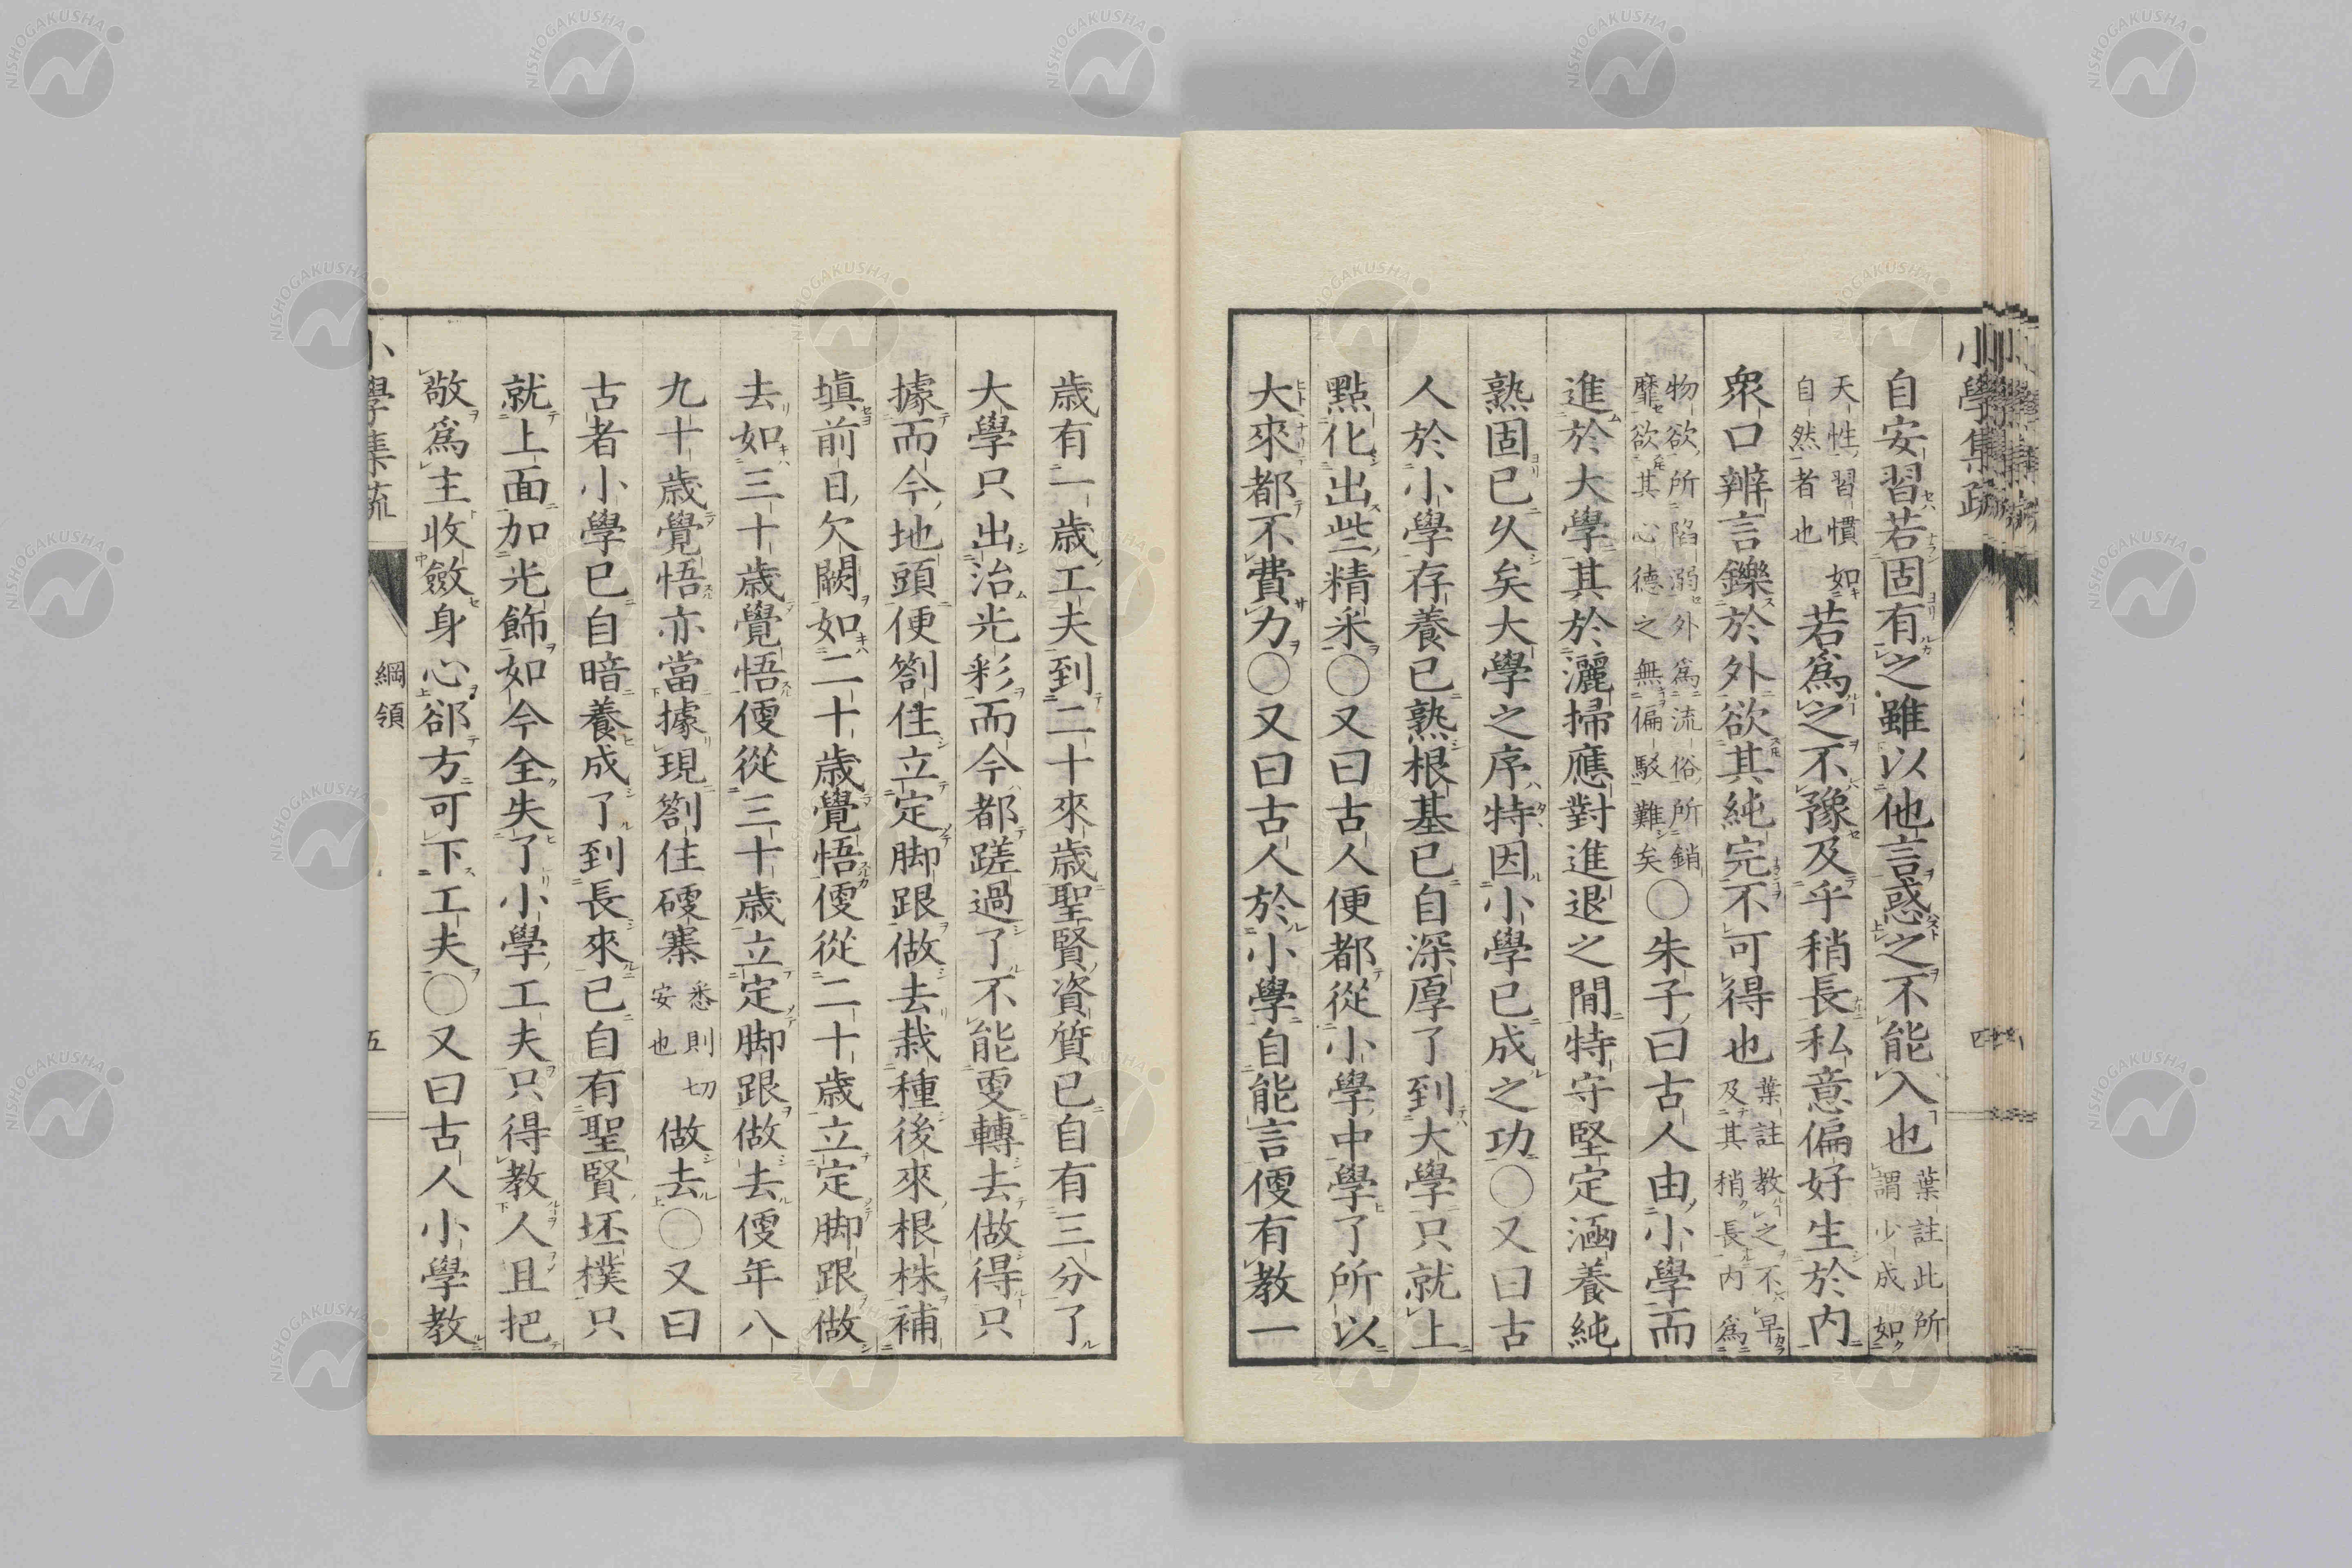 小學集疏
四
自安習若固有之雖以他言惑之不能入也葉註此所謂少成如
天性習慣如自然者也若爲之不豫及乎稍長私意偏好生於内
衆口辨言鑠於外欲其純完不可得也葉註教之不早及其稍長内爲
物欲所陷溺外爲流俗所銷靡欲其心德之無偏駁難矣○朱子曰古人由小學而
進於大學其於灑掃應對進退之間特守堅定涵養純
熟固已久矣大學之序特因小學已成之功○又曰古
人於小學存養已熟根基已自深厚了到大學只就上
點化出些精采○又曰古人便都從小學中學了所以
大來都不費力○又曰古人於小學自能言便有教一
歳有一歳工夫到二十來歳聖賢資質已自有三分了
大學只出治光彩而今都蹉過了不能更轉去做得只
據而今地頭便劄住立定脚跟做去栽種後來根株補
塡前日欠闕如二十歳覺悟便從二十歳立定脚跟做
去如三十歳覺悟便從三十歳立定脚跟做去便年八
九十歳覺悟亦當據現劄住硬寨悉則切安也做去○又曰
古者小學已自暗養成了到長來已自有聖賢坯樸只
就上面加光飾如今全失了小學工夫只得教人且把
敬爲主收斂身心郤方可下工夫○又曰古人小學教
小學集疏
綱領
五
NISHOGAKUSHA